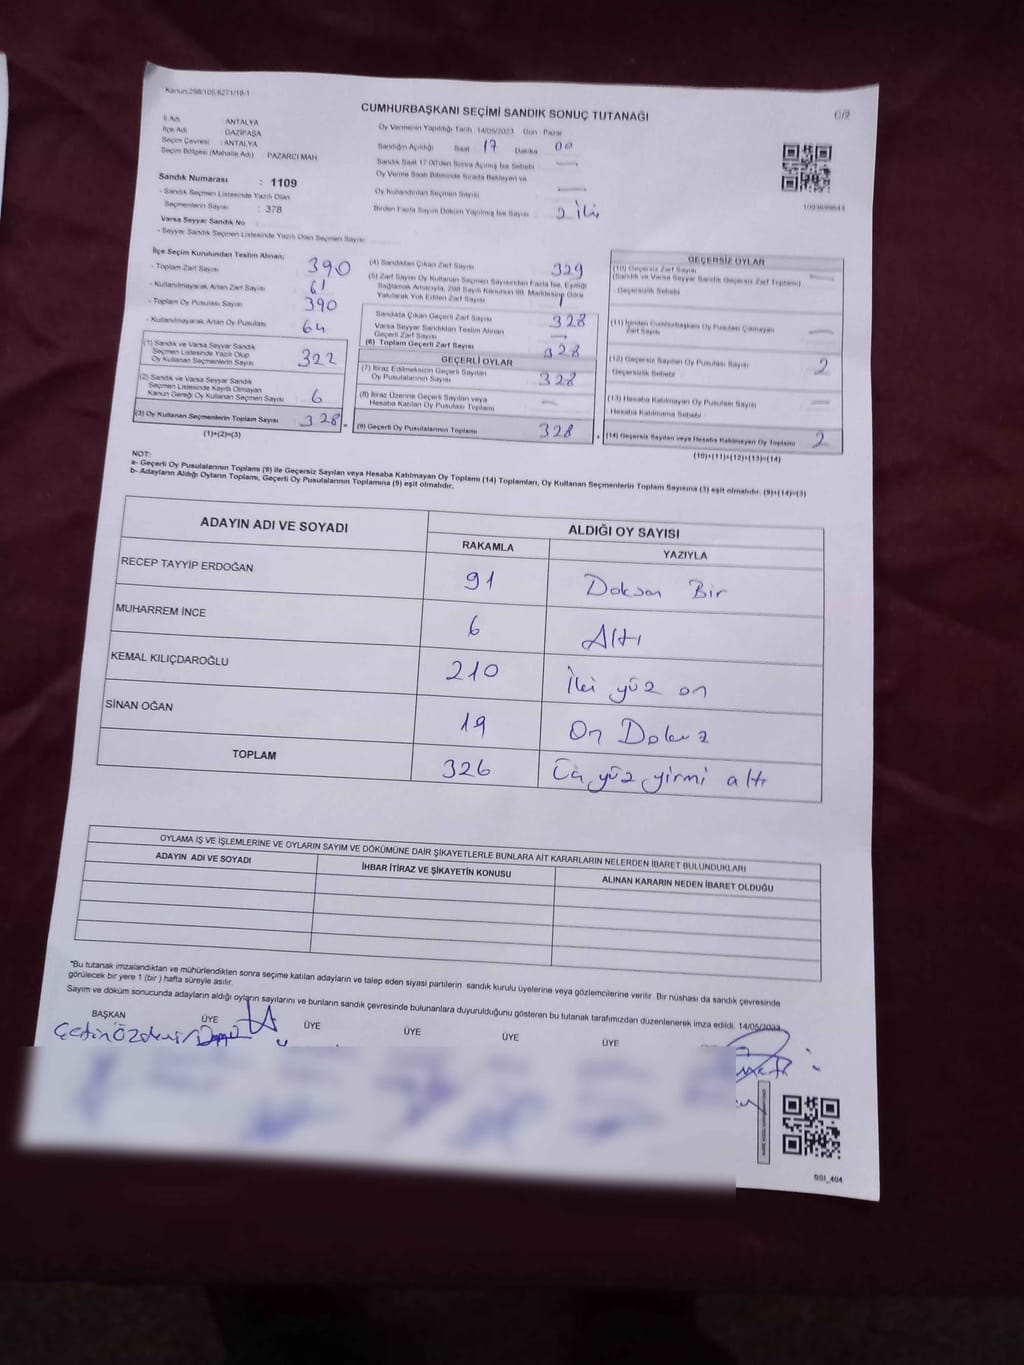 Kanun:298/105,6271/18-1
CUMHURBAŞKANI SEÇİMİ SANDIK SONUÇ TUTANAĞI
İl Adı ANTALYA
İlçe Adı GAZİPAŞA
Seçim Çevresi : ANTALYA
Seçim Bölgesi (Mahalle Adı) PAZARCI MAH.
Sandık Numarası : 1109
- Sandık Seçmen Listesinde Yazılı Olan
Seçmenlerin Sayısı : 378
Varsa Seyyar Sandık No
- Seyyar Sandık Listesinde Yazılı Olan Seçmen Sayısı
Oy Vermenin Yapıldığı Tarih :14/05/2023 Gün : Pazar
Sandığın Açıldığı Saat 17 Dakika 00
Sandık Saat 17:00'den Sonra Açılmış İse Sebebi
Oy Verme Saati Bitiminde Sırada Bekleyen ve
Oy Kullandırılan Seçmen Sayısı
Birden Fazla Sayım Döküm Yapılmış İse Sayısı
İlçe Seçim Kurulundan Teslim Alınan;
- Toplam Zarf Sayısı 390
- Kullanılmayarak Artan Zarf Sayısı 61
- Toplam Oy Pusulası Sayısı 390
- Kullanılmayarak Artan Oy Pusulası 64
(1) Sandık ve Varsa Seyyar Sandık
Seçmen Listesinde Yazılı Olup
Oy Kullanan Seçmenlerin Sayısı 322
(2) Sandık ve Varsa Seyyar Sandık
Seçmen Listesinde Kayıtlı Olmayan
Kanun Gereği Oy Kullanan Seçmen Sayısı 6
(3) Oy Kullanan Seçmenlerin Toplam Sayısı 328
(1)+(2)=(3)
(4) Sandıktan Çıkan Zarf Sayısı 329
(5) Zarf Sayısı Oy Kullanan Seçmen Sayısından Fazla İse, Eşitliği
Sağlamak Amacıyla, 298 Sayılı Kanunun 98. Maddesine Göre
Yakılarak Yok Edilen Zarf Sayısı 1
Sandıkta Çıkan Geçerli Zarf Sayısı 328
Varsa Seyyar Sandıktan Teslim Alınan
Geçerli Zarf Sayısı
(6) Toplam Geçerli Zarf Sayısı 328
GEÇERLİ OYLAR
(7) İtiraz Edilmeksizin Geçerli Sayılan
Oy Pusulalarının Sayısı 328
(8) İtiraz Üzerine Geçerli Sayılan veya
Hesaba Katılan Oy Pusulası Toplamı
(9) Geçerli Oy Pusulalarının Toplamı 328
GEÇERSİZ OYLAR
(10) Geçersiz Zarf Sayısı
(Sandık ve Varsa Seyyar Sandık Geçersiz Zarf Toplamı)
Geçersizlik Sebebi
(11) İçinden Cumhurbaşkanı Oy Pusulası Çıkmayan
Zarf Sayısı
(12) Geçersiz Sayılan Oy Pusulası Sayısı 2
Geçersizlik Sebebi
(13) Hesaba Katılmayan Oy Pusulası Sayısı
Hesaba Katılmama Sebebi
(14) Geçersiz Sayılan veya Hesaba Katılmayan Oy Toplamı 2
(10)+(11)+(12)+(13)=(14)
NOT:
a- Geçerli Oy Pusulalarının Toplamı (9) ile Geçersiz Sayılan veya Hesaba Katılmayan Oy Toplamı (14) Toplamları, Oy Kullanan Seçmenlerin Toplam Sayısına (3) eşit olmalıdır. (9)+(14)=(3)
b- Adayların Aldığı Oyların Toplamı, Geçerli Oy Pusulalarının Toplamına (9) eşit olmalıdır.
ADAYIN ADI VE SOYADI
ALDIĞI OY SAYISI
RAKAMLA YAZIYLA
RECEP TAYYİP ERDOĞAN 91 Doksan Bir
MUHARREM İNCE 6 Altı
KEMAL KILIÇDAROĞLU 210 İki yüz on
SİNAN OĞAN 19 On Dokuz
TOPLAM 326 Üç yüz yirmi altı
OYLAMA İŞ VE İŞLEMLERİNE VE OYLARIN SAYIM VE DÖKÜMÜNE DAİR ŞİKAYETLERLE BUNLARA AİT KARARLARIN NELERDEN İBARET BULUNDUKLARI
ADAYIN ADI VE SOYADI İHBAR İTİRAZ VE ŞİKAYETİN KONUSU ALINAN KARARIN NEDEN İBARET OLDUĞU
*Bu tutanak imzalandıktan ve mühürlendikten sonra seçime katılan adayların ve talep eden siyasi partilerin sandık kurulu üyelerine veya gözlemcilerine verilir. Bir nüshası da sandık çevresinde
görülecek bir yere 1 (bir ) hafta süreyle asılır.
Sayım ve döküm sonucunda adayların aldığı oyların sayılarını ve bunların sandık çevresinde bulunanlara duyurulduğunu gösteren bu tutanak tarafımızdan düzenlenerek imza edildi. 14/05/2023
BAŞKAN ÜYE ÜYE ÜYE ÜYE ÜYE
Çetin Özdemir
SSI_404